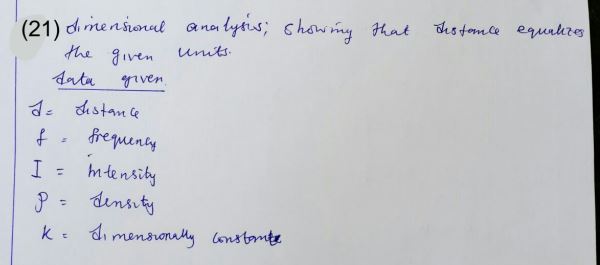 (21) dimensional analysis; showing that distance equalizes
the given units.
data given.
d = distance
f = frequency
I = Intensity
ρ = density
K = dimensionally constant